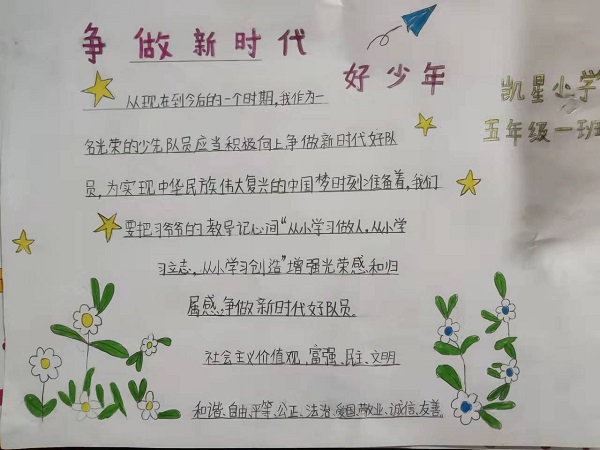 争做新时代
好少年
凯星小学
五年级一班
从现在到今后的一个时期,我作为一
名光荣的少先队员应当积极向上争做新时代好队
员,为实现中华民族伟大复兴的中国梦时刻准备着,我们
要把习爷爷的教导记心间“从小学习做人,从小学
习立志,从小学习创造”增强光荣感和归
属感,争做新时代好队员。
社会主义价值观,富强、民主、文明
和谐、自由、平等、公正、法治、爱国、敬业、诚信、友善。